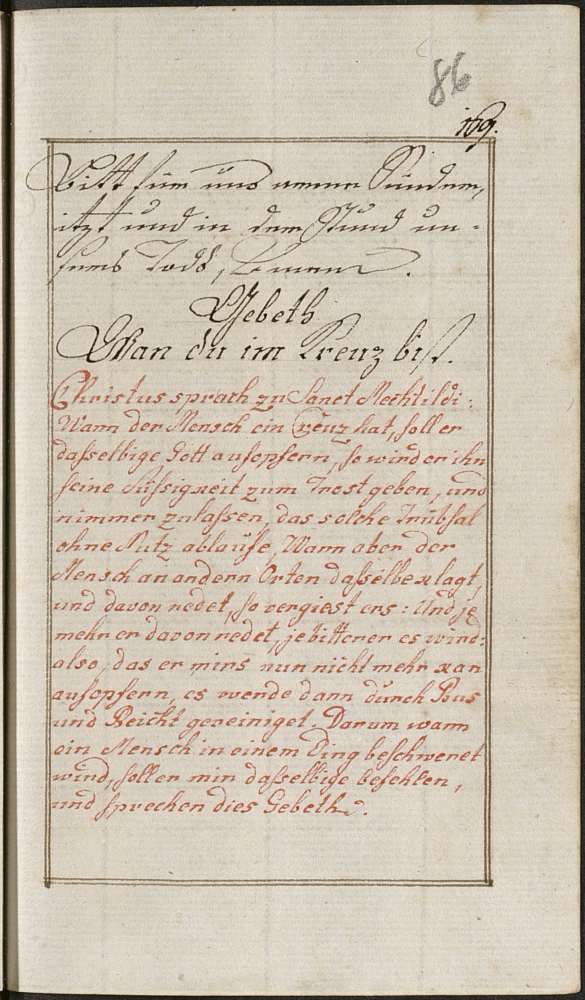 86
169.
Bitt für uns arme Sünder,
itzt und in der Stund un=
sers Tods, Amen.
Gebeth
Wan du im Kreuz bist.
Christus sprach zu Sanct Mechtildi:
Wann der Mensch ein Creuz hat, soll er
dasselbige Gott aufopfern, so wird er ihn
seine Süssigkeit zum Trost geben, und
nimmer zulassen, das solche Trübsal
ohne Nutz ablaufe, Wann aber der
Mensch an andern Orten dasselbe klagt,
und davon redet, so vergiest ers: Und je
mehr er davon redet, je bitterer es wird:
also, das er mirs nun nicht mehr kan
aufopfern, es werde dann durch Bus
und Beicht gereiniget. Darum wann
ein Mensch in einem Ding beschweret
wird, soll er mir dasselbige befehlen,
und sprechen dies Gebeth.